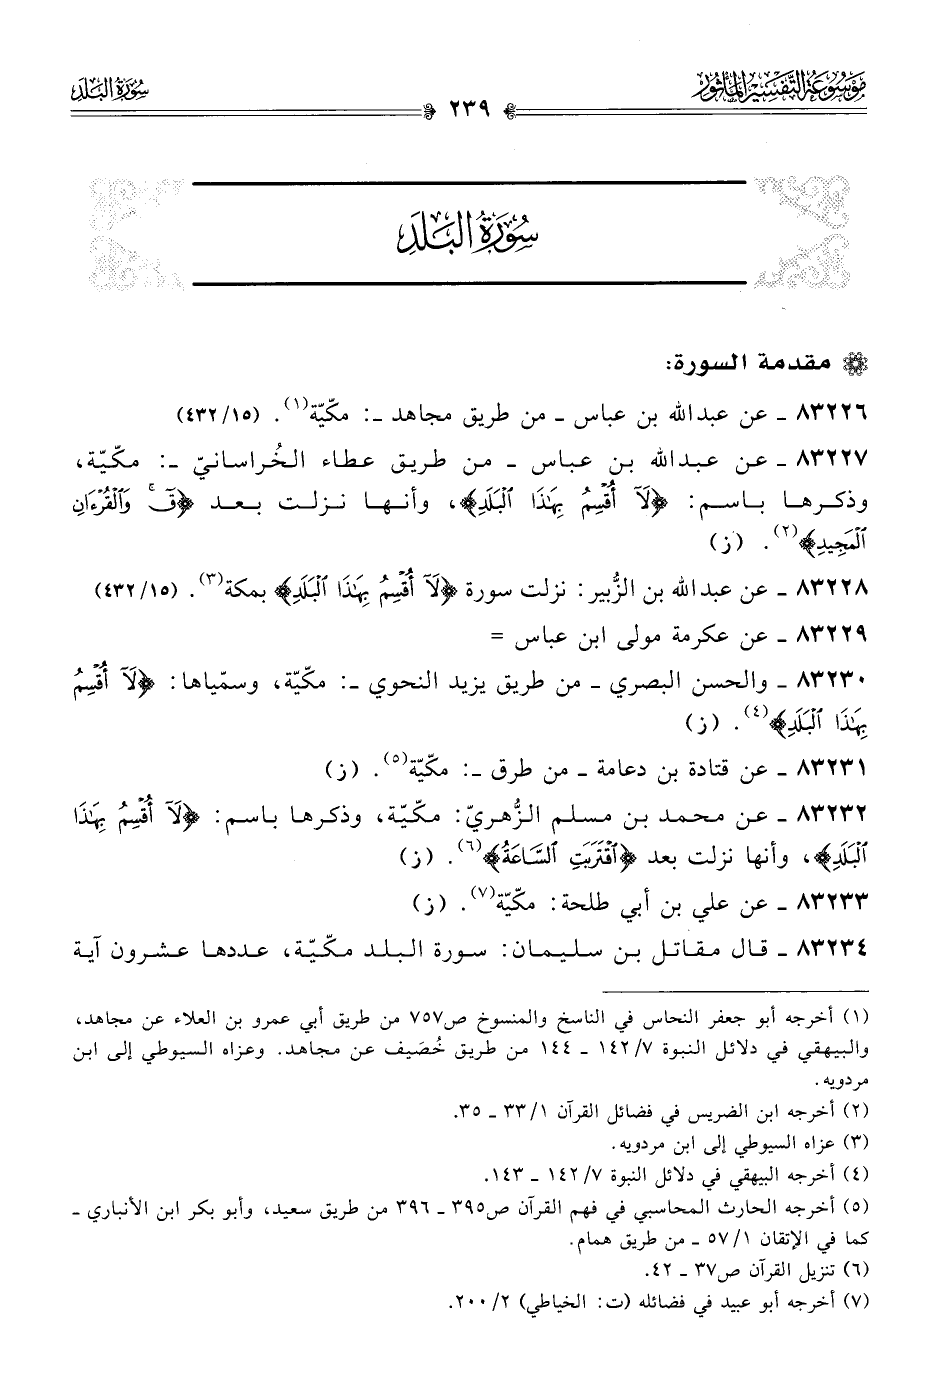 موسوعة التفسير المأثور
٢٣٩
سورة البلد
سُورَةُ البَلَدِ
مقدمة السورة:
٨٣٢٢٦ ـ عن عبدالله بن عباس ـ من طريق مجاهد ـ: مكّيّة(١). (٤٣٢/١٥)
٨٣٢٢٧ ـ عن عبدالله بن عباس ـ من طريق عطاء الخُراسانيّ ـ: مكّيّة،
وذكرها باسم: ﴿لَآ أُقْسِمُ بِهَٰذَا ٱلْبَلَدِ﴾، وأنها نزلت بعد ﴿قٓۚ وَٱلْقُرْءَانِ
ٱلْمَجِيدِ﴾(٢). (ز)
٨٣٢٢٨ ـ عن عبدالله بن الزُّبير: نزلت سورة ﴿لَآ أُقْسِمُ بِهَٰذَا ٱلْبَلَدِ﴾ بمكة(٣). (٤٣٢/١٥)
٨٣٢٢٩ ـ عن عكرمة مولى ابن عباس =
٨٣٢٣٠ ـ والحسن البصري ـ من طريق يزيد النحوي ـ: مكّيّة، وسمّياها: ﴿لَآ أُقْسِمُ
بِهَٰذَا ٱلْبَلَدِ﴾(٤). (ز)
٨٣٢٣١ ـ عن قتادة بن دعامة ـ من طرق ـ: مكّيّة(٥). (ز)
٨٣٢٣٢ ـ عن محمد بن مسلم الزُّهريّ: مكّيّة، وذكرها باسم: ﴿لَآ أُقْسِمُ بِهَٰذَا
ٱلْبَلَدِ﴾، وأنها نزلت بعد ﴿ٱقْتَرَبَتِ ٱلسَّاعَةُ﴾(٦). (ز)
٨٣٢٣٣ ـ عن علي بن أبي طلحة: مكّيّة(٧). (ز)
٨٣٢٣٤ ـ قال مقاتل بن سليمان: سورة البلد مكّيّة، عددها عشرون آية
(١) أخرجه أبو جعفر النحاس في الناسخ والمنسوخ ص٧٥٧ من طريق أبي عمرو بن العلاء عن مجاهد،
والبيهقي في دلائل النبوة ١٤٢/٧ ـ ١٤٤ من طريق خُصَيف عن مجاهد. وعزاه السيوطي إلى ابن
مردويه.
(٢) أخرجه ابن الضريس في فضائل القرآن ٣٣/١ ـ ٣٥.
(٣) عزاه السيوطي إلى ابن مردويه.
(٤) أخرجه البيهقي في دلائل النبوة ١٤٢/٧ ـ ١٤٣.
(٥) أخرجه الحارث المحاسبي في فهم القرآن ص٣٩٥ ـ ٣٩٦ من طريق سعيد، وأبو بكر ابن الأنباري ـ
كما في الإتقان ٥٧/١ ـ من طريق همام.
(٦) تنزيل القرآن ص٣٧ ـ ٤٢.
(٧) أخرجه أبو عبيد في فضائله (ت: الخياطي) ٢٠٠/٢.